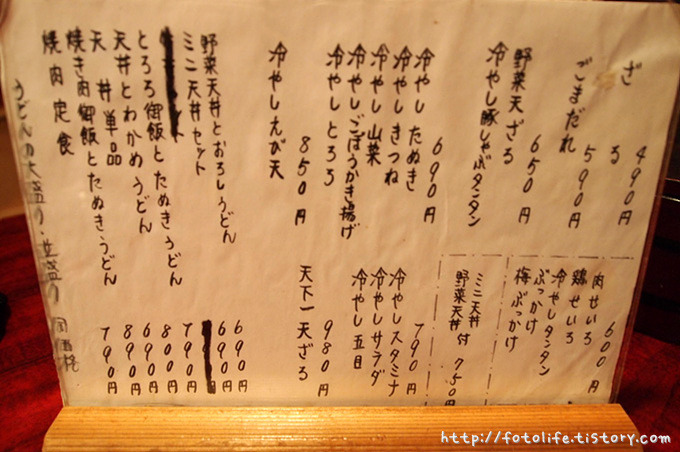 ざる 490円
ごまだれ 590円
野菜天ざる 650円
冷やし豚しゃぶタンタン
冷やし たぬき 690円
冷やし きつね
冷やし 山菜
冷やし ごぼうかき揚げ
冷やし とろろ
冷やし えび天 850円
肉せいろ 600円
鶏せいろ
冷やしタンタン
ぶっかけ
梅ぶっかけ
ミニ天丼
野菜天丼 付 750円
冷やしスタミナ 790円
冷やしサラダ
冷やし五目
天下一天ざる 980円
野菜天丼とおろしうどん 690円
ミニ天丼セット 690円
とろろ御飯とたぬきうどん 790円
天丼とわかめうどん 800円
天丼単品 690円
焼き肉御飯とたぬきうどん 890円
焼肉定食 790円
うどんの大盛り・並盛り 同価格
http://fotolife.tistory.com/